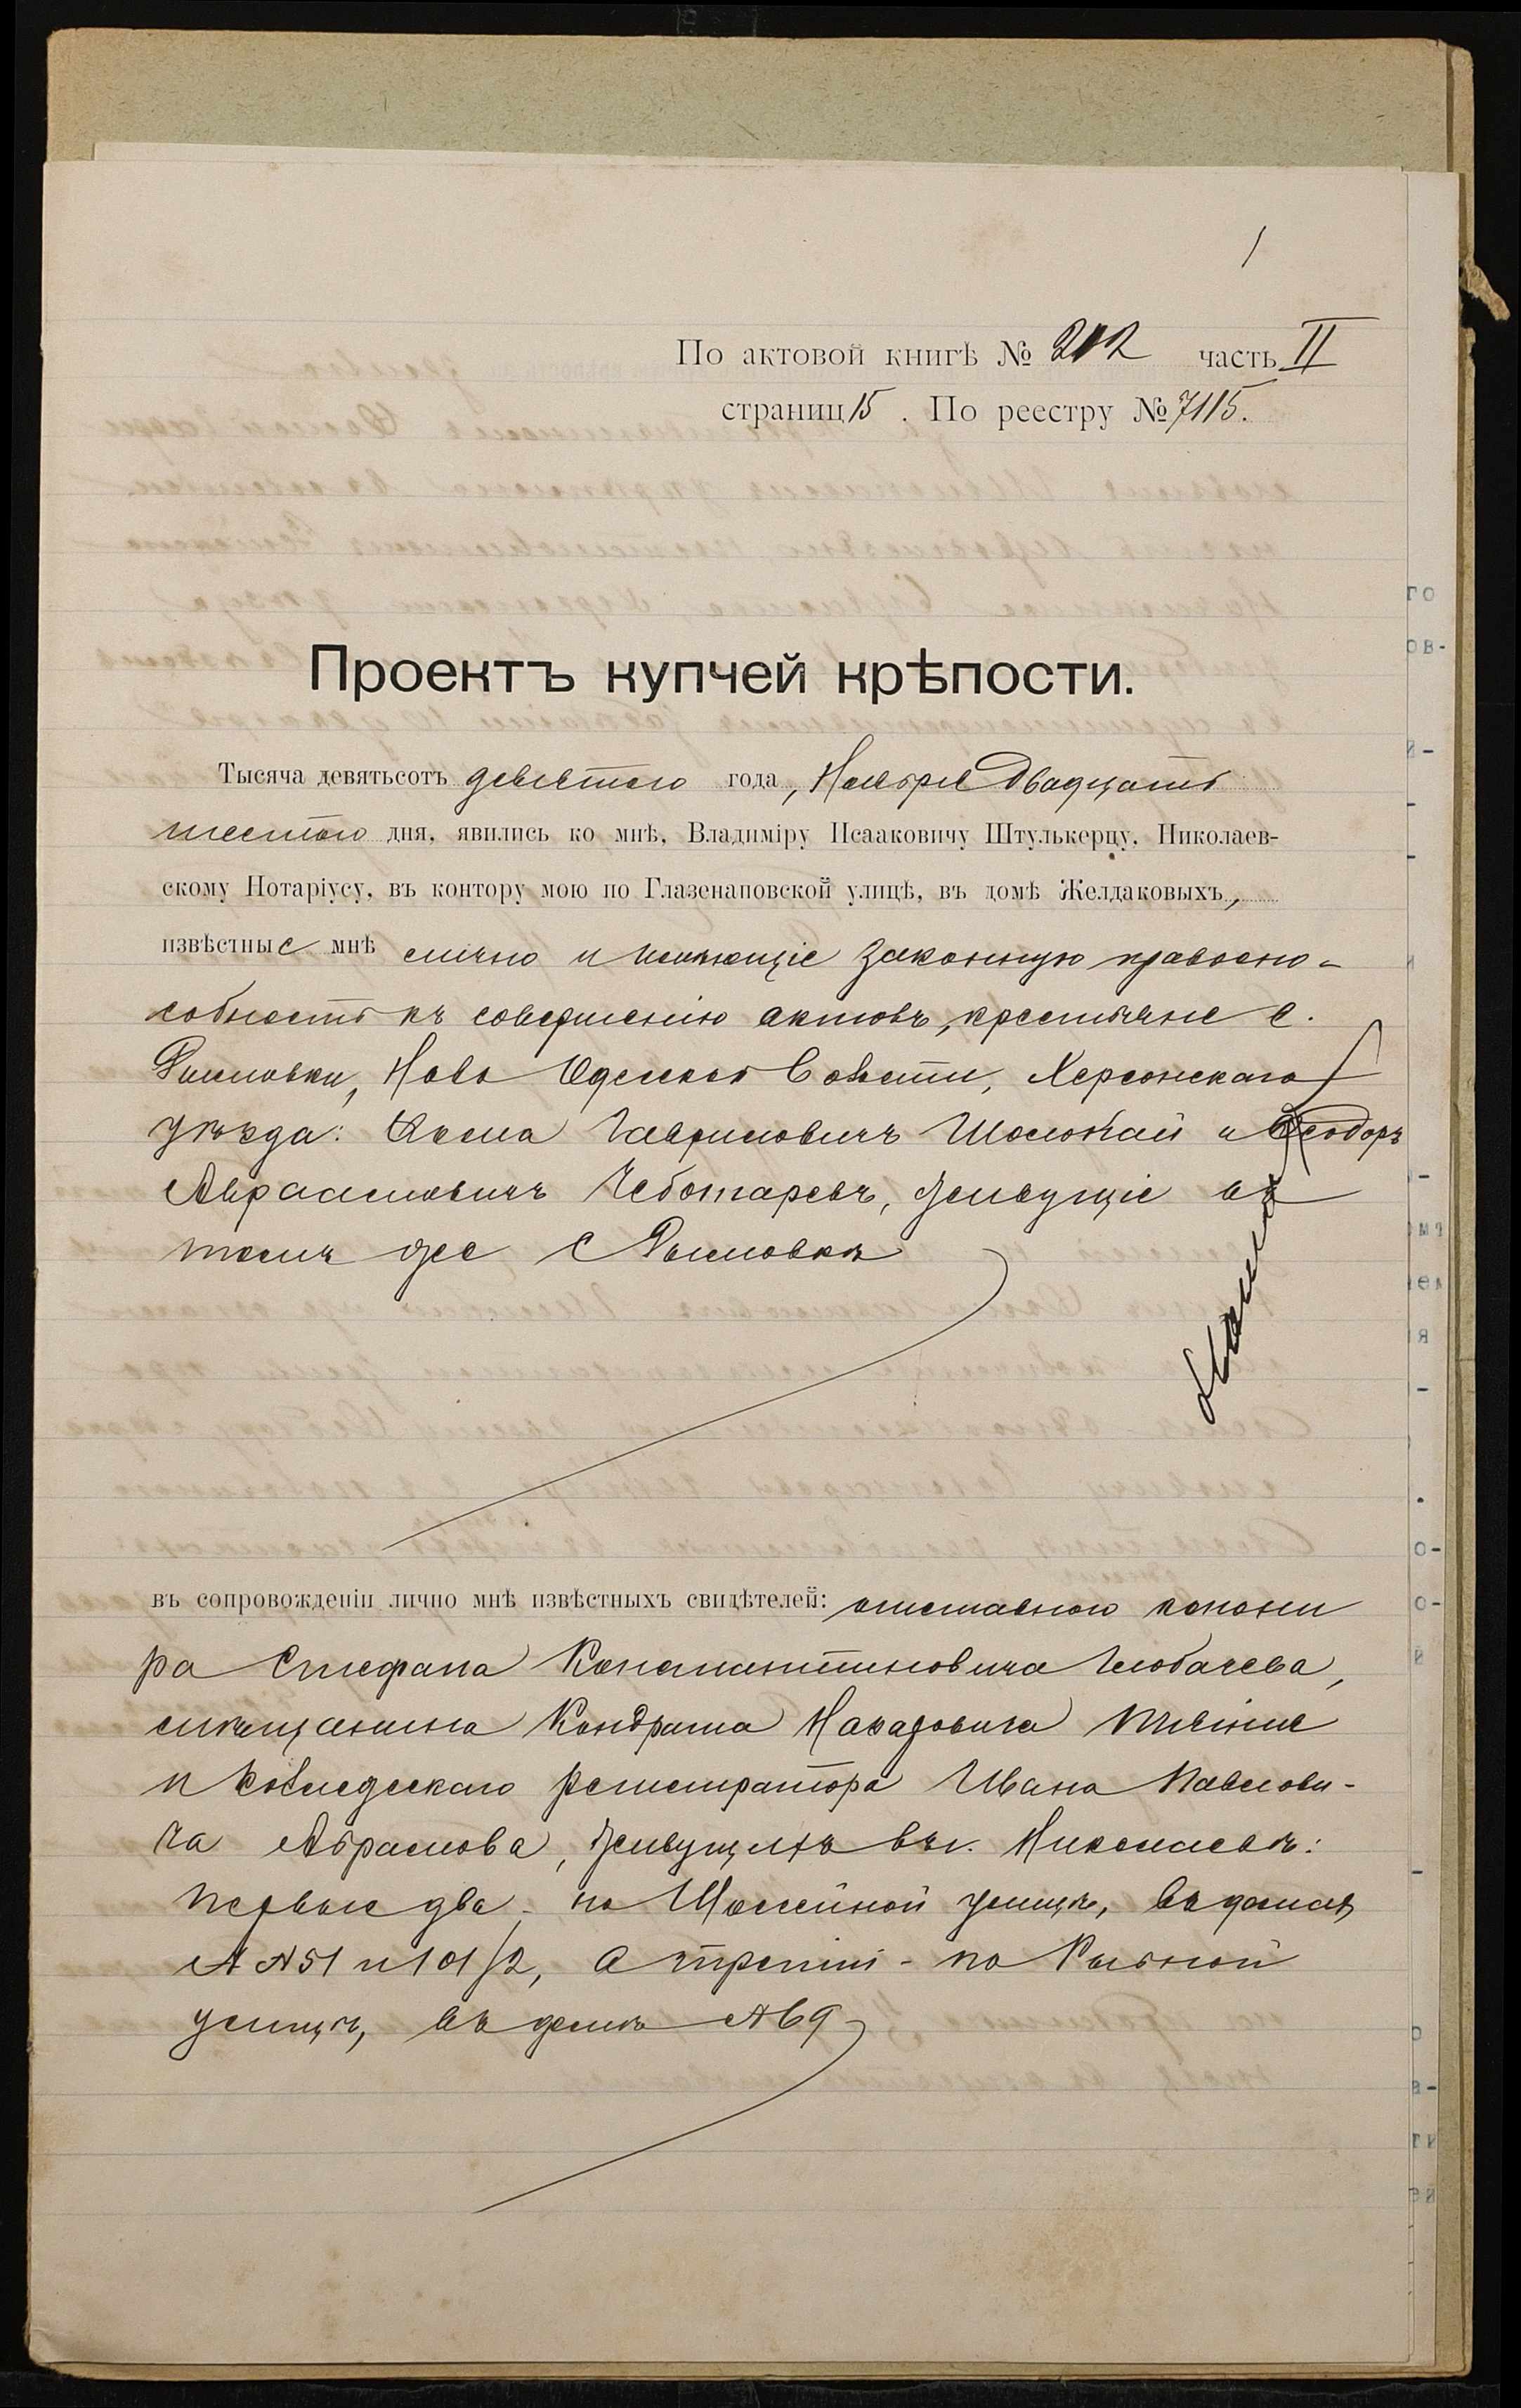 1
По актовой книгѣ № 202 часть II
страниц 15. По реестру № 7115.
Проектъ купчей крѣпости.
Тысяча девятьсотъ девятаго года, Ноября двадцать
шестого дня, явились ко мнѣ, Владиміру Исааковичу Штулькерцу, Николаев-
скому Нотаріусу, въ контору мою по Глазенаповской улицѣ, въ домѣ Желдаковыхъ,
извѣстные мнѣ лично и имѣющіе законную правоспо-
собность къ совершенію актовъ, крестьяне с.
Ново Одесской Волости, Херсонскаго
уѣзда: Гавриловичъ и Ѳеодоръ
Авраамовичъ Чеботаревъ, живущіе въ
томъ же с
въ сопровожденіи лично мнѣ извѣстныхъ свидѣтелей: отставного канони
ра Стефана Константиновича
мѣщанина Кондрата Назаровича
и Коллежскаго регистратора Ивана Павлови-
ча Абрамова, живущихъ въ г. Николаевѣ:
первые два - по Шоссейной улицѣ, въ домахъ
№ № 51 и 101/2, а третій - по Рыбной
улицѣ, въ домѣ № 69